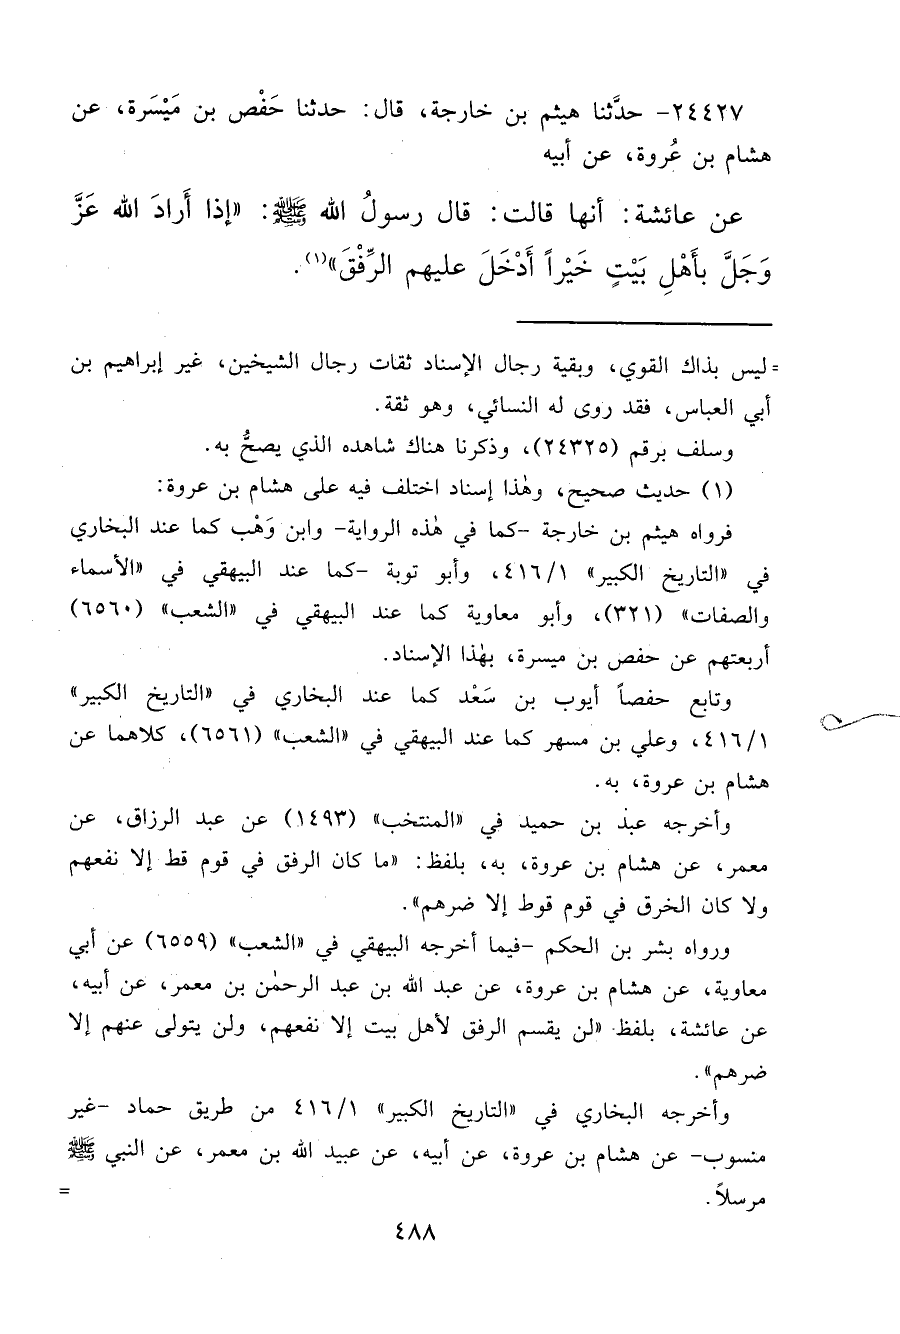 ٢٤٤٢٧- حدَّثنا هيثم بن خارجة، قال: حدثنا حَفْص بن مَيْسَرة، عن
هشام بن عُروة، عن أبيه
عن عائشة: أنها قالت: قال رسولُ الله ﷺ: «إذا أَرادَ الله عَزَّ
وَجَلَّ بأَهْلِ بَيْتٍ خَيْراً أَدْخَلَ عليهم الرِّفْقَ»(١).
= ليس بذاك القوي، وبقية رجال الإسناد ثقات رجال الشيخين، غير إبراهيم بن
أبي العباس، فقد روى له النسائي، وهو ثقة.
وسلف برقم (٢٤٣٢٥)، وذكرنا هناك شاهده الذي يصحُّ به.
(١) حديث صحيح، وهٰذا إسناد اختلف فيه على هشام بن عروة:
فرواه هيثم بن خارجة -كما في هٰذه الرواية- وابن وَهْب كما عند البخاري
في «التاريخ الكبير» ٤١٦/١، وأبو توبة -كما عند البيهقي في «الأسماء
والصفات» (٣٢١)، وأبو معاوية كما عند البيهقي في «الشعب» (٦٥٦٠)
أربعتهم عن حفص بن ميسرة، بهٰذا الإسناد.
وتابع حفصاً أيوب بن سَعْد كما عند البخاري في «التاريخ الكبير»
٤١٦/١، وعلي بن مسهر كما عند البيهقي في «الشعب» (٦٥٦١)، كلاهما عن
هشام بن عروة، به.
وأخرجه عبد بن حميد في «المنتخب» (١٤٩٣) عن عبد الرزاق، عن
معمر، عن هشام بن عروة، به، بلفظ: «ما كان الرفق في قوم قط إلا نفعهم
ولا كان الخرق في قوم قوط إلا ضرهم».
ورواه بشر بن الحكم -فيما أخرجه البيهقي في «الشعب» (٦٥٥٩) عن أبي
معاوية، عن هشام بن عروة، عن عبد الله بن عبد الرحمٰن بن معمر، عن أبيه،
عن عائشة، بلفظ «لن يقسم الرفق لأهل بيت إلا نفعهم، ولن يتولى عنهم إلا
ضرهم».
وأخرجه البخاري في «التاريخ الكبير» ٤١٦/١ من طريق حماد -غير
منسوب- عن هشام بن عروة، عن أبيه، عن عبيد الله بن معمر، عن النبي ﷺ
مرسلاً. =
٤٨٨